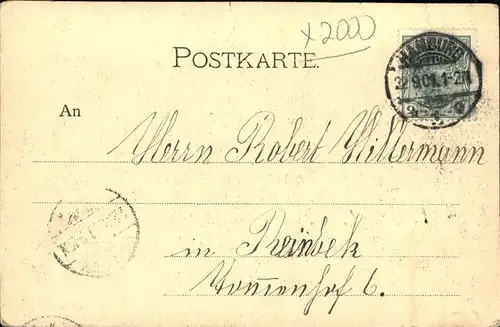 x 2000
POSTKARTE.
HAMBURG
9.01.1-2N
An
Herrn Robert Willermann
in Reinbek
6.